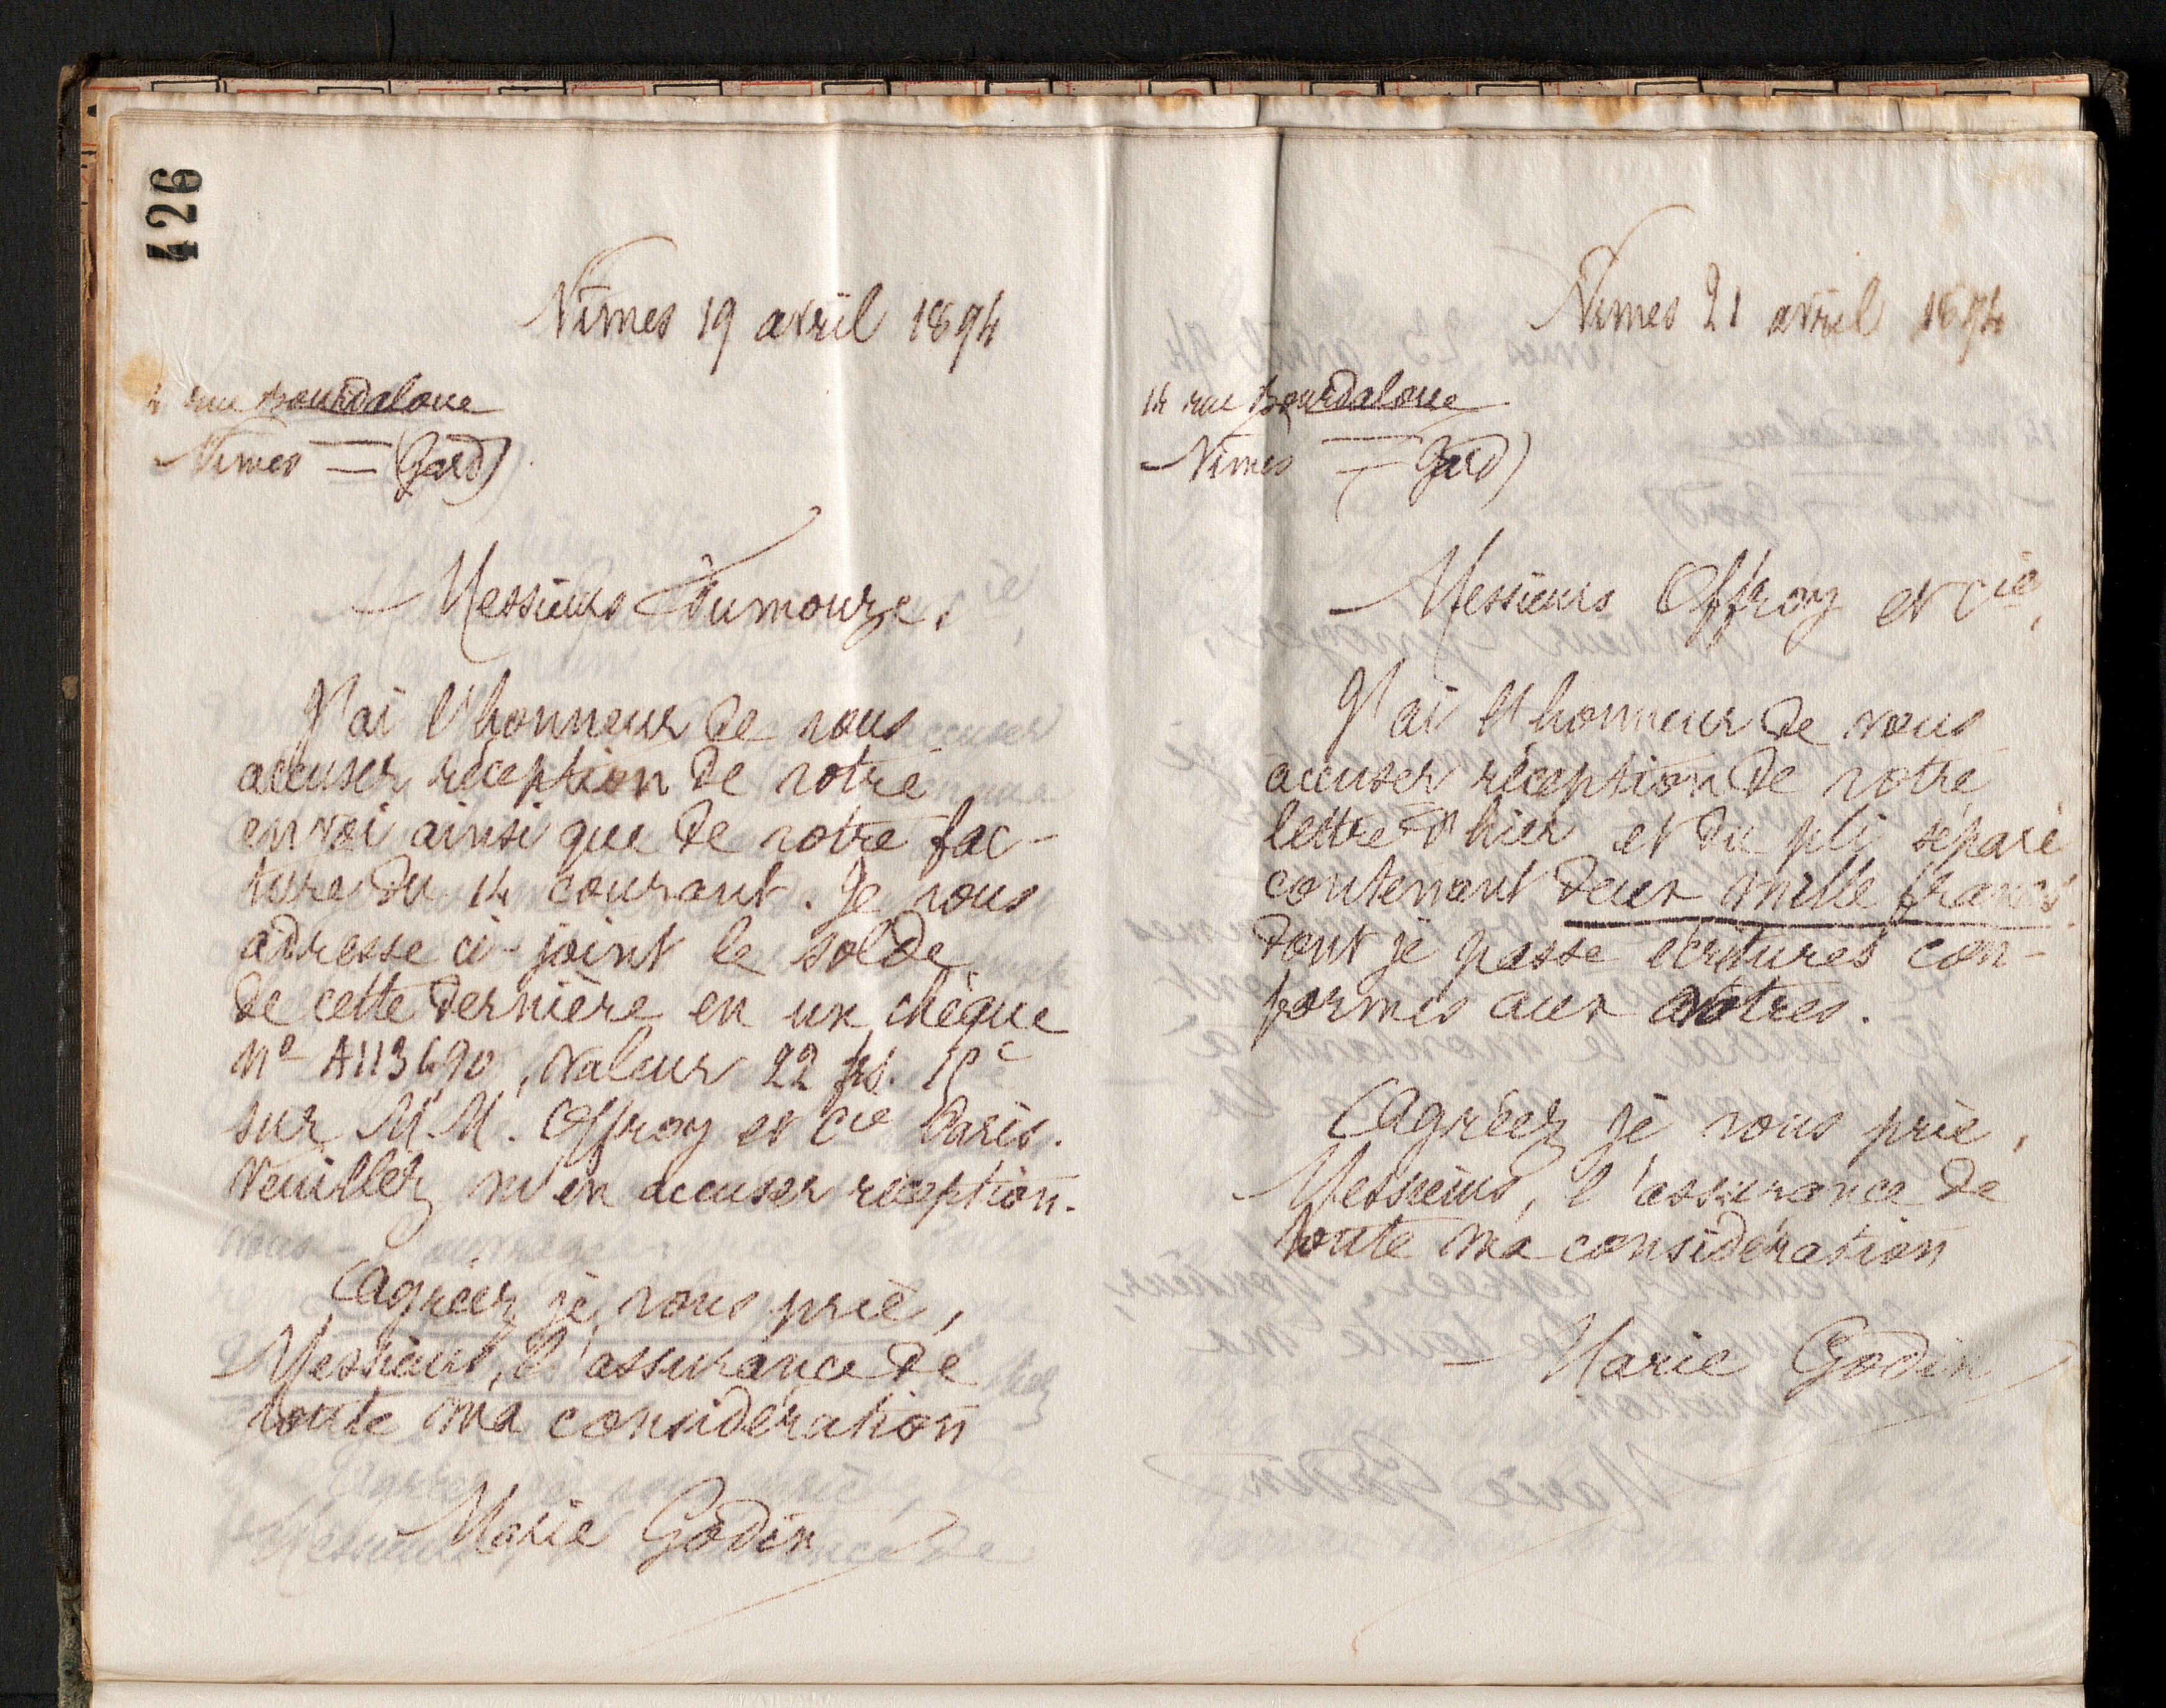 426
Nîmes 19 avril 1894
14 rue Bourdaloue
Nîmes = (Gard)
Messieurs Fumouze,
J'ai l'honneur de vous
accuser réception de votre
envoi ainsi que de votre fac-
ture du 14 courant. Je vous
adresse ci-joint le solde
de cette dernière en un chèque
no A113690, valeur 22 frs.
sur M.M. Offroy et Cie Paris.
Veuillez m'en accuser réception.
Agréez je vous prie,
Messieurs, l'assurance de
toute ma considération
Marie Godin
Nîmes 21 avril 1894
14 rue Bourdaloue
Nîmes = (Gard)
Messieurs Offroy et Cie,
J'ai l'honneur de vous
accuser réception de votre
lettre d'hier et du pli séparé
contenant deux mille francs
dont je passe écritures con-
formes aux vôtres.
Agréez je vous prie,
Messieurs, l'assurance de
toute ma considération
Marie Godin